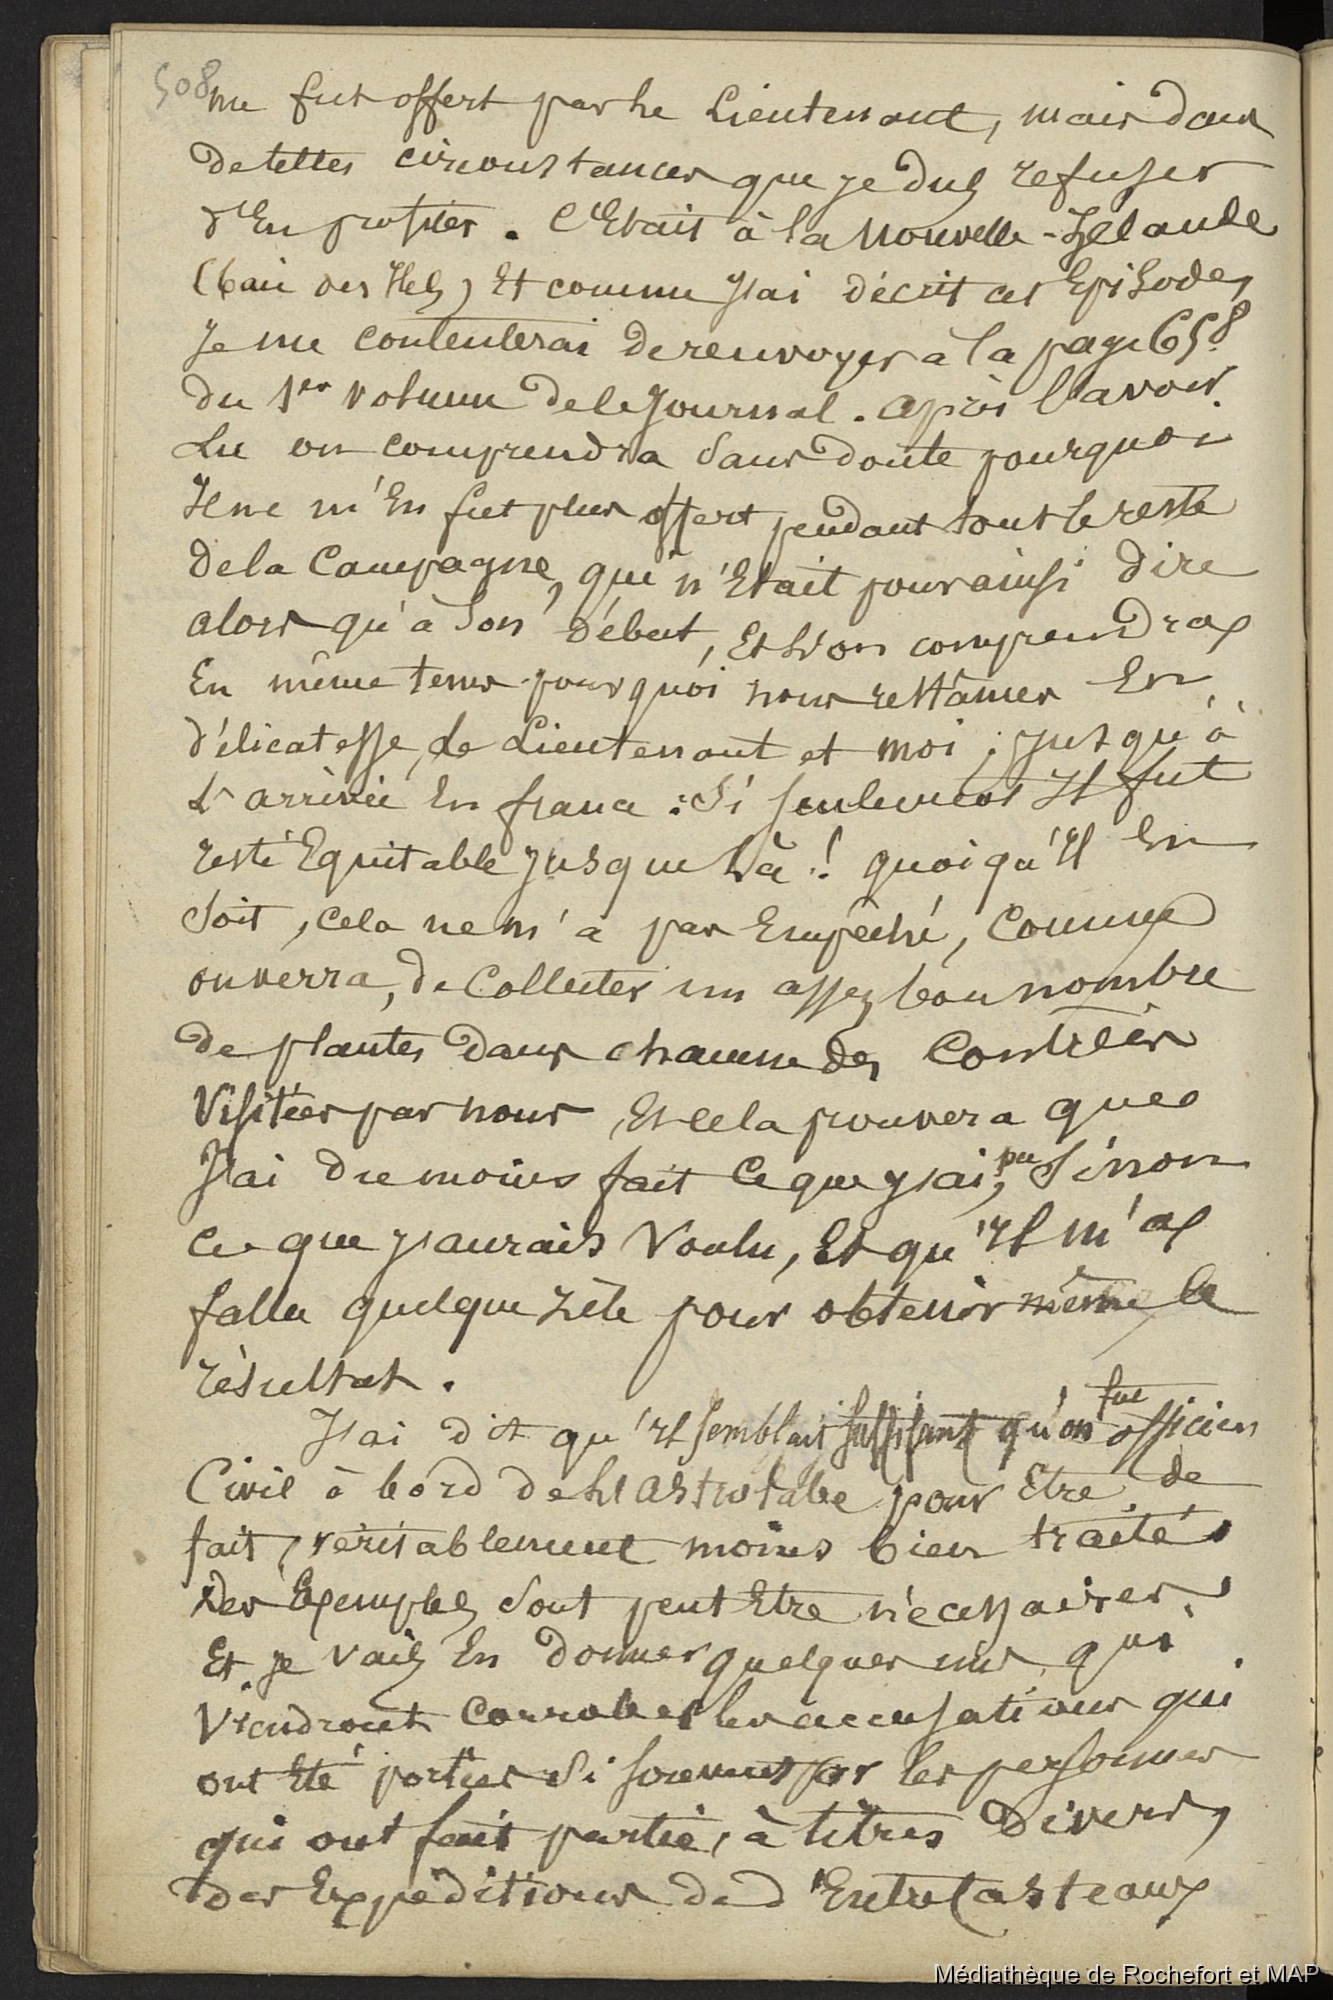 508
me fut offert par le Lieutenant, mais dans
de telles circonstances que je dus refuser
d'En profiter. C'Etait à la Nouvelle-Zélande
(baie des Iles) Et comme J'ai décrit ces Episodes,
Je me contenterai de renvoyer à la page 658
du 1er volume de le Journal. après l'avoir
Lu on comprendra sans doute pourquoi
Il ne m'En fut plus offert pendant tout le reste
de la Campagne, qui n'Etait pour ainsi dire
alors qu'à son début, Et l'on comprendra
En même tems pourquoi nous restâmes En
délicatesse, le Lieutenant et moi, jusqu'à
L'arrivée En france : Si seulement Il fut
resté Equitable jusque là ! quoiqu'Il En
soit, cela ne m'a pas Empêché, comme
on verra, de Collecter un assez bon nombre
de plantes dans chacune des Contrées
Visitées par nous, Et cela prouvera que
J'ai du moins fait ce que j'ai pu, Sinon
ce que j'aurais Voulu, Et qu'Il m'a
fallu quelque zèle pour obtenir même ce
résultat.
J'ai dit qu'Il semblait suffisant qu'on fut officier
Civil à bord de L'Astrolabe pour Etre de
fait, véritablement moins bien traité.
Des Exemples sont peut Etre nécessaires,
Et je vais En donner quelques uns qui
Viendront corroborer les accusations qui
ont Eté portées si souvent par les personnes
qui ont fait partie, à titres divers,
des Expéditions de d'EntreCasteaux
Médiathèque de Rochefort et MAP